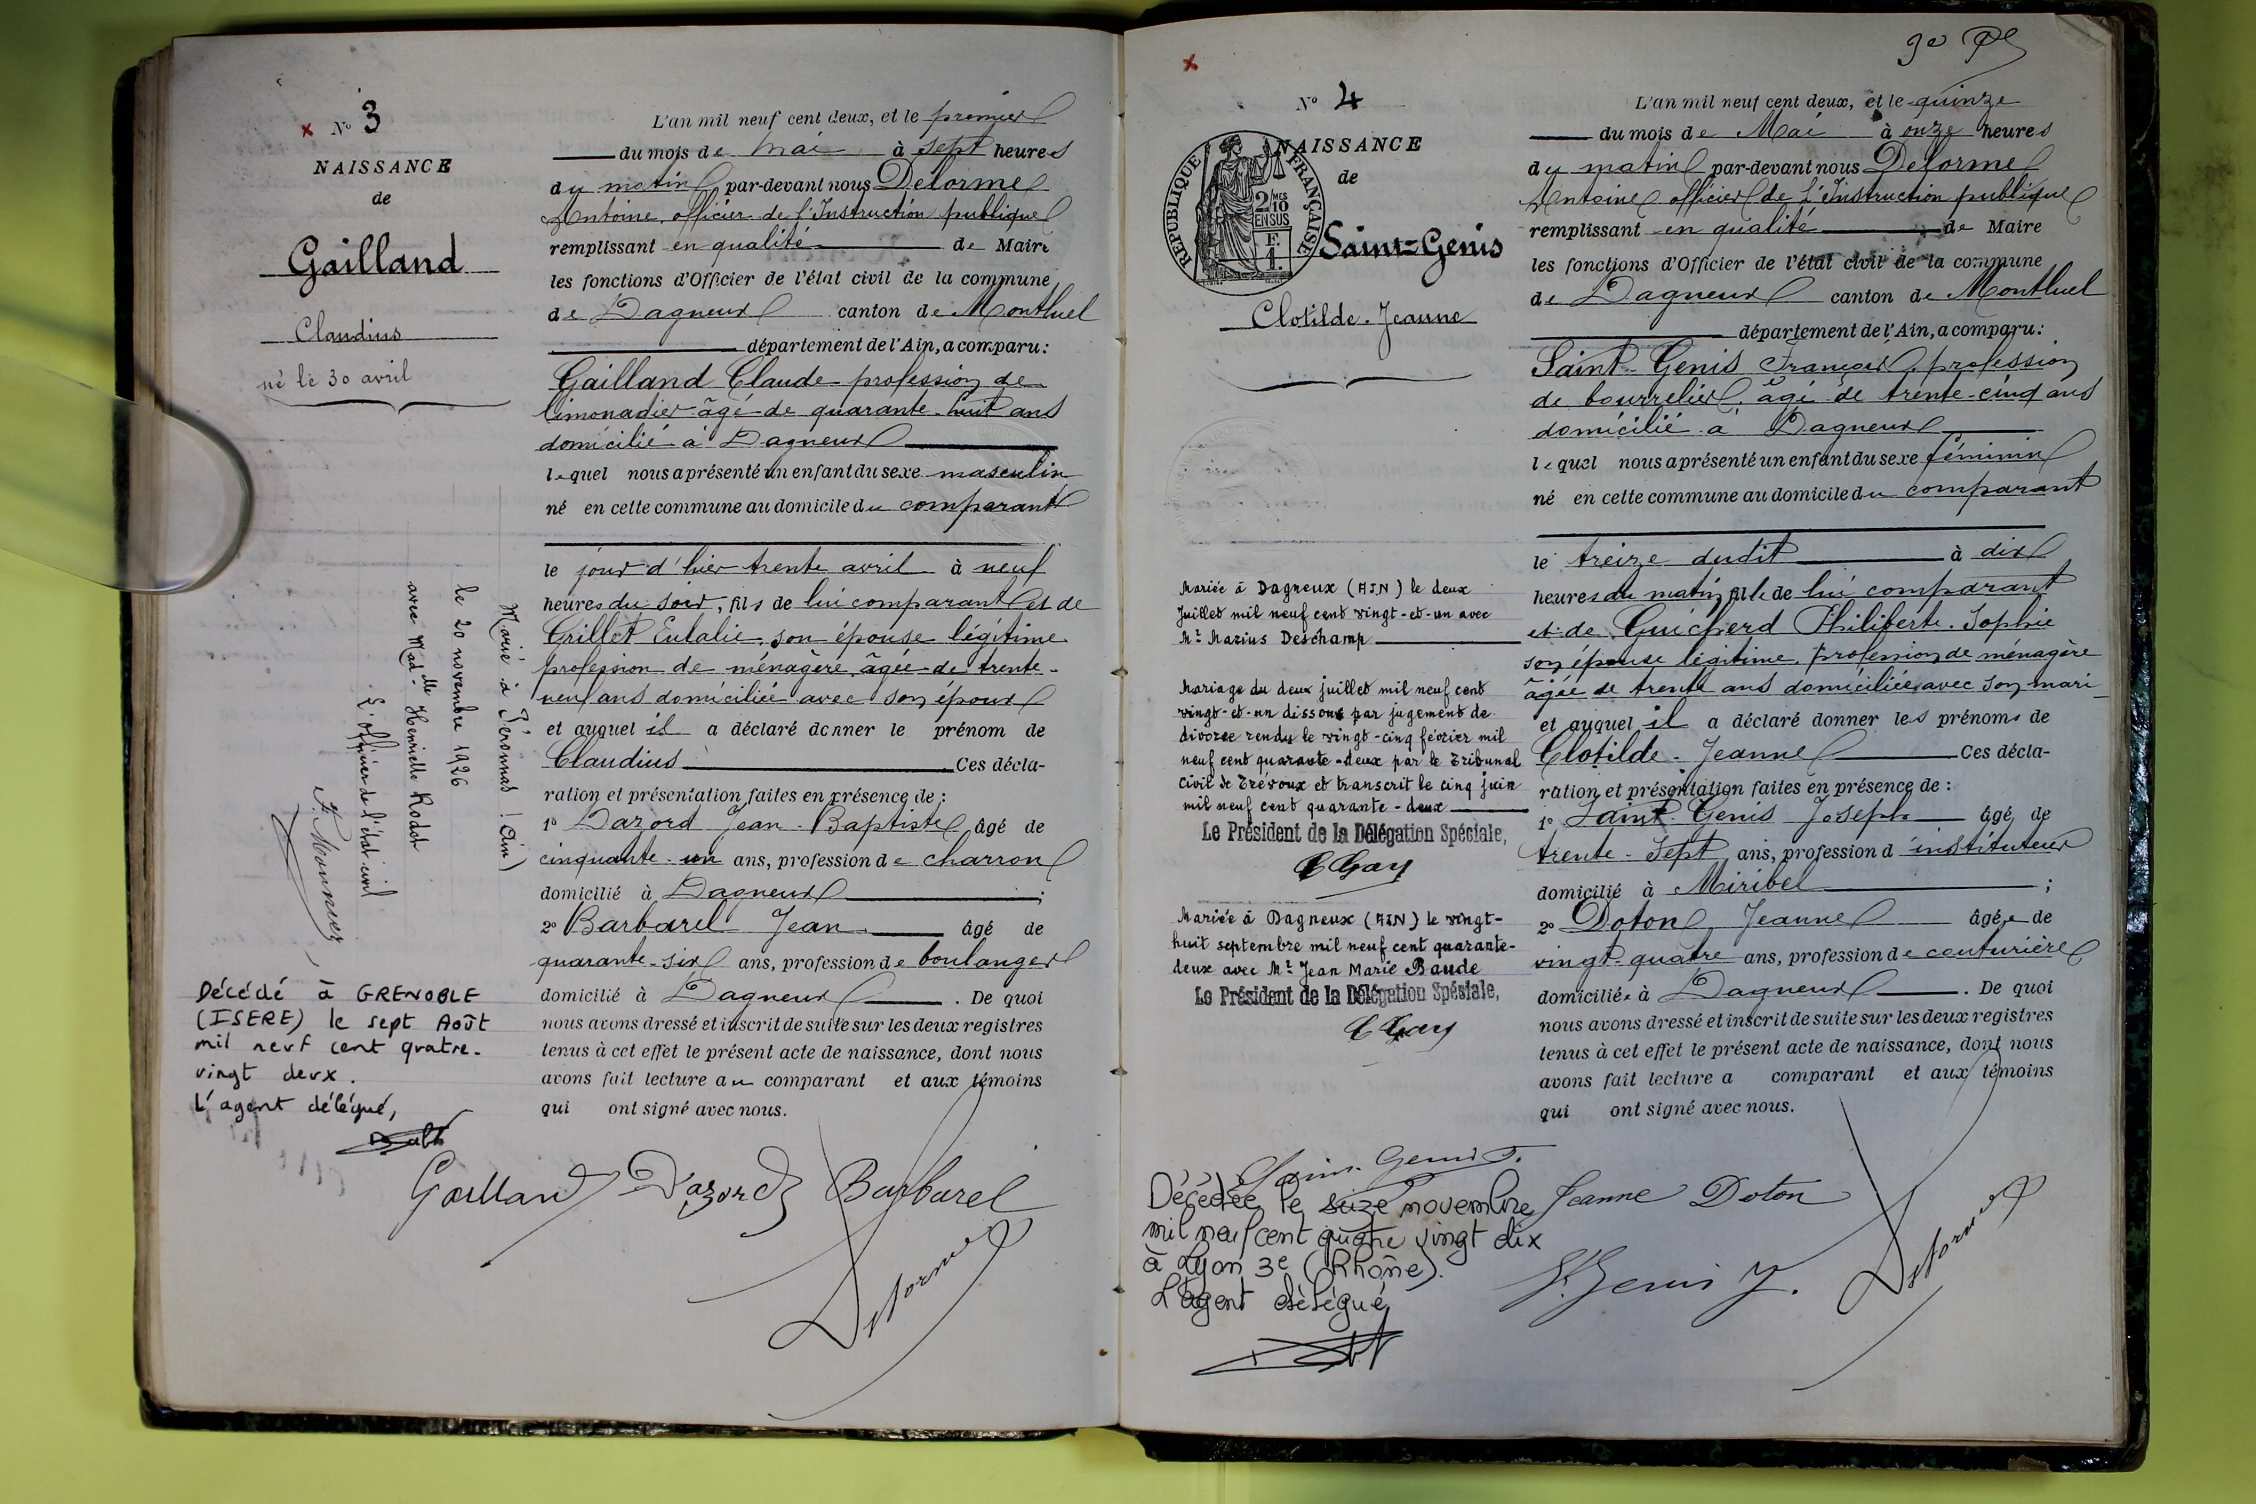 N° 3
NAISSANCE
de
Gailland
Claudius
né le 30 avril
Marié à Péronnas (Ain)
le 20 novembre 1926
avec Mad.elle Henriette Rodot
L'officier de l'état civil
Décédé à GRENOBLE
(ISERE) le sept Août
mil neuf cent quatre-
vingt deux.
L'agent délégué,
L'an mil neuf cent deux, et le premier
du mois de mai à sept heures
du matin par-devant nous Delorme
Antoine, officier de l'Instruction publique
remplissant en qualité de Maire
les fonctions d'Officier de l'état civil de la commune
de Dagneux canton de Montluel
département de l'Ain, a comparu:
Gailland Claude profession de
limonadier âgé de quarante-huit ans
domicilié à Dagneux
lequel nous a présenté un enfant du sexe masculin
né en cette commune au domicile du comparant
le jour d'hier trente avril à neuf
heures du soir, fils de lui comparant et de
Grillet Eulalie, son épouse légitime
profession de ménagère âgée de trente-
neuf ans domiciliée avec son époux
et auquel il a déclaré donner le prénom de
Claudius Ces décla-
ration et présentation faites en présence de :
1° Dazord Jean-Baptiste âgé de
cinquante-un ans, profession de charron
domicilié à Dagneux ;
2° Barbarel Jean âgé de
quarante-six ans, profession de boulanger
domicilié à Dagneux . De quoi
nous avons dressé et inscrit de suite sur les deux registres
tenus à cet effet le présent acte de naissance, dont nous
avons fait lecture au comparant et aux témoins
qui ont signé avec nous.
Gailland Dazord Barbarel
Delorme
N° 4
NAISSANCE
de
REPUBLIQUE FRANÇAISE
2 MES
10
EN SUS
F.
1.
Saint-Genis
Clotilde-Jeanne
Mariée à Dagneux (AIN) le deux
Juillet mil neuf cent vingt-et-un avec
Mr Marius Deschamp
Mariage du deux juillet mil neuf cent
vingt-et-un dissous par jugement de
divorce rendu le vingt-cinq février mil
neuf cent quarante-deux par le Tribunal
Civil de Trévoux et transcrit le cinq juin
mil neuf cent quarante-deux
Le Président de la Délégation Spéciale,
C Gay
Mariée à Dagneux (AIN) le vingt-
huit septembre mil neuf cent quarante-
deux avec Mr Jean Marie Baude
Le Président de la Délégation Spéciale,
C Gay
L'an mil neuf cent deux, et le quinze
du mois de Mai à onze heures
du matin par-devant nous Delorme
Antoine officier de l'Instruction publique
remplissant en qualité de Maire
les fonctions d'Officier de l'état civil de la commune
de Dagneux canton de Montluel
département de l'Ain, a comparu:
Saint-Genis François, profession
de bourrelier, âgé de trente-cinq ans
domicilié à Dagneux
lequel nous a présenté un enfant du sexe féminin
né en cette commune au domicile du comparant
le treize dudit à dix
heures du matin, fille de lui comparant
et de Guicherd Philiberte-Sophie
son épouse légitime, profession de ménagère
âgée de trente ans domiciliée avec son mari
et auquel il a déclaré donner les prénoms de
Clotilde-Jeanne Ces décla-
ration et présentation faites en présence de :
1° Saint-Genis Joseph âgé de
trente-sept ans, profession d instituteur
domicilié à Miribel ;
2° Doton Jeanne âgée de
vingt-quatre ans, profession de couturière
domiciliée à Dagneux . De quoi
nous avons dressé et inscrit de suite sur les deux registres
tenus à cet effet le présent acte de naissance, dont nous
avons fait lecture a comparant et aux témoins
qui ont signé avec nous.
Saint-Genis F.
Jeanne Doton
St Genis J.
Delorme
Décédée le seize novembre
mil neuf cent quatre vingt dix
à Lyon 3e (Rhône).
L'agent délégué